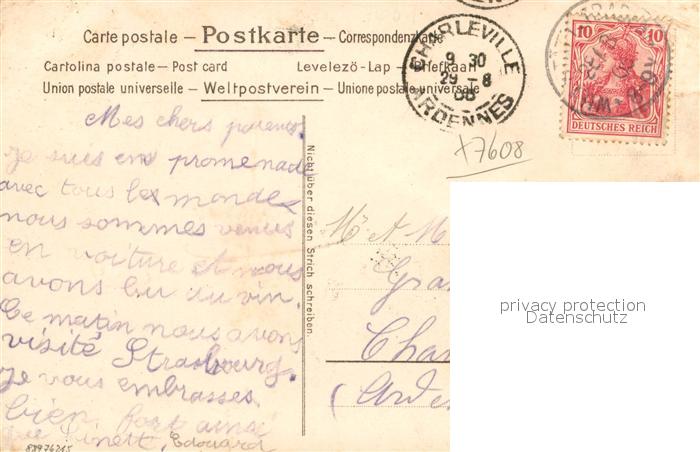 Carte postale — Postkarte — Correspondenzkarte
Cartolina postale — Post card Levelező-Lap — Brefkaart
Union postale universelle — Weltpostverein — Unione postale universale
CHARLEVILLE
9 30
29 - 8
08
ARDENNES
10 10
DEUTSCHES REICH
+7608
Mes chers parents.
Je suis en promenade
avec tous les mondes
nous sommes venus
en voiture et nous
avons bu du vin.
Ce matin nous avons
visité Strasbourg.
Je vous embrasses
bien fort ainsi
Edouard
Nicht über diesen Strich schreiben.
Mr et M
Gra
Cha
(Arde
privacy protection
Datenschutz
88976215